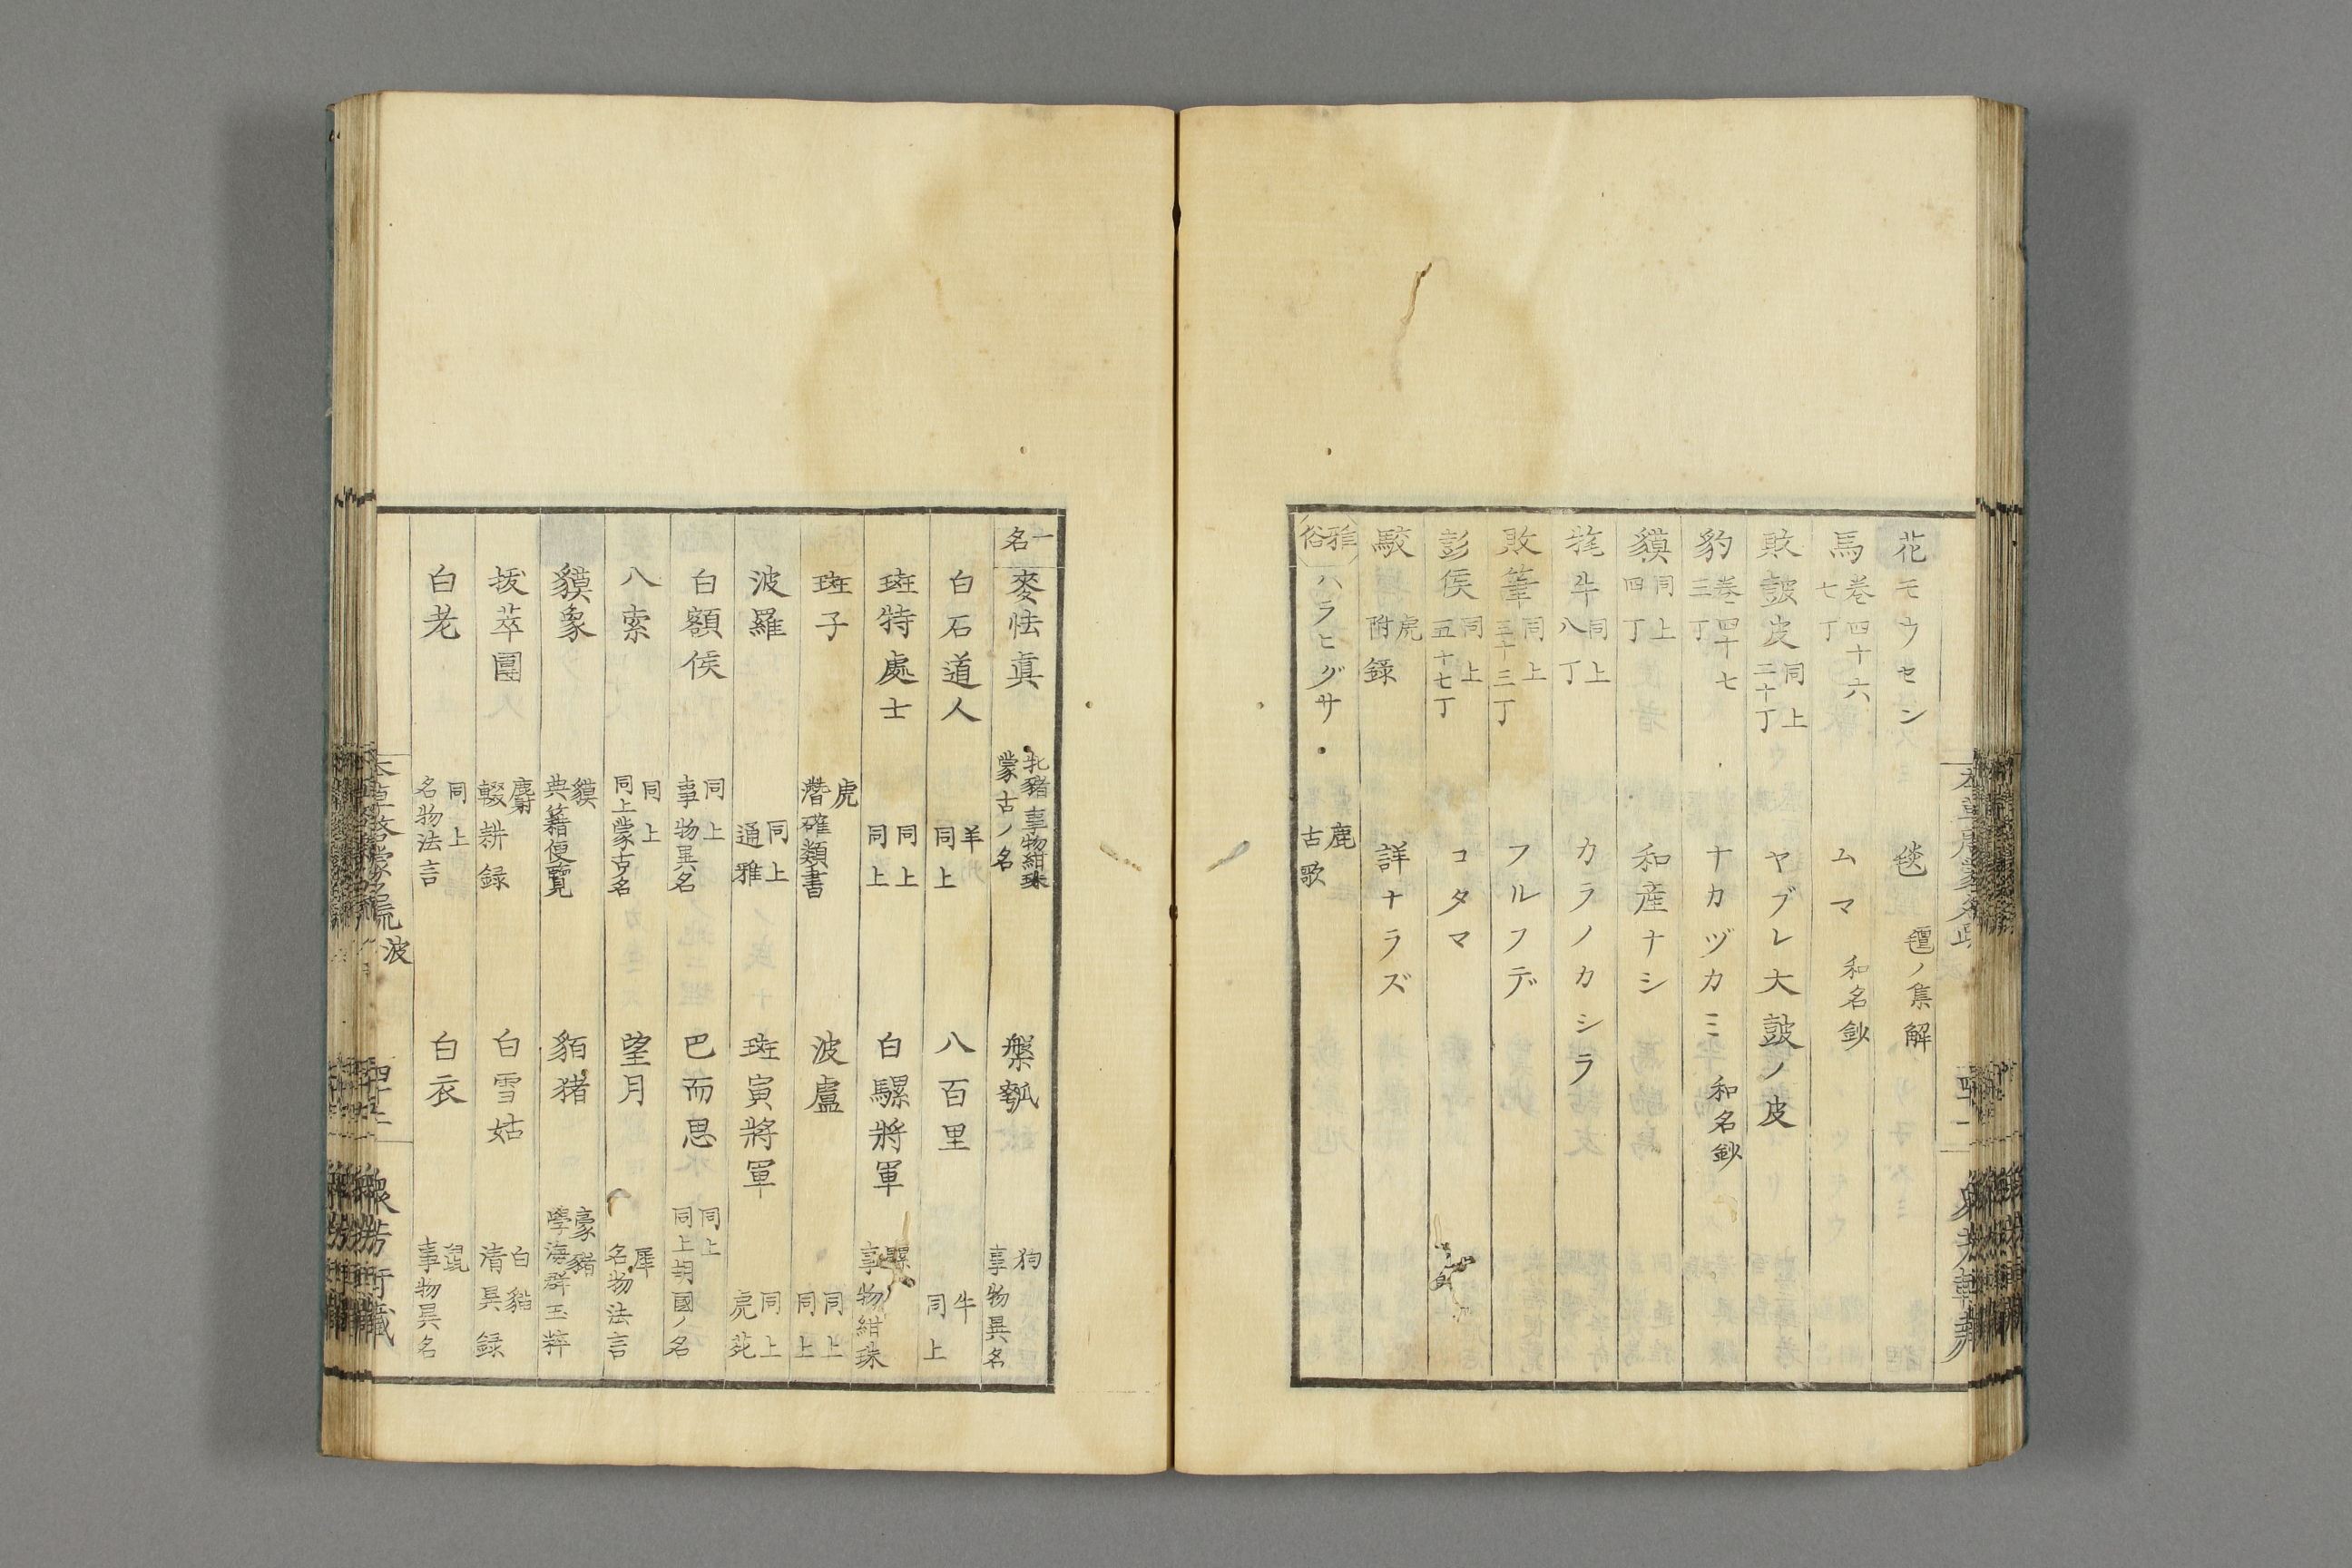 花モウセン 毯 氊ノ集解
馬 巻四十六 七丁 ムマ 和名鈔
敗皷皮 同上 三十丁 ヤブレ大皷ノ皮
豹 巻四十七 三丁 ナカヅカミ 和名鈔
貘 同上 四丁 和産ナシ
牦牛 同上 八丁 カラノカシラ
敗筆 同上 三十三丁 フルフデ
彭侯 同上 五十七丁 コタマ
駮 虎附錄 詳ナラズ
雅俗 ハラヒグサ 鹿 古歌
一名 麥怯眞 牝豬 事物紺珠 蒙古ノ名 槃瓠 狗 事物異名
白石道人 羊 同上 八百里 牛 同上
斑特處士 同上 同上 白騾將軍 騾 事物紺珠
斑子 虎 潛確類書 波盧 同上 同上
波羅 同上 通雅 斑寅將軍 同上 虎苑
白額侯 同上 事物異名 巴而思 同上 同上胡國ノ名
八索 同上 同上蒙古名 望月 犀 名物法言
貘象 貘 典籍便覽 貊猪 豪豬 學海群玉粹
拔萃團 麝 輟耕録 白雪姑 白貓 清異録
白老 同上 名物法言 白衣 鼠 事物異名
波
四十二